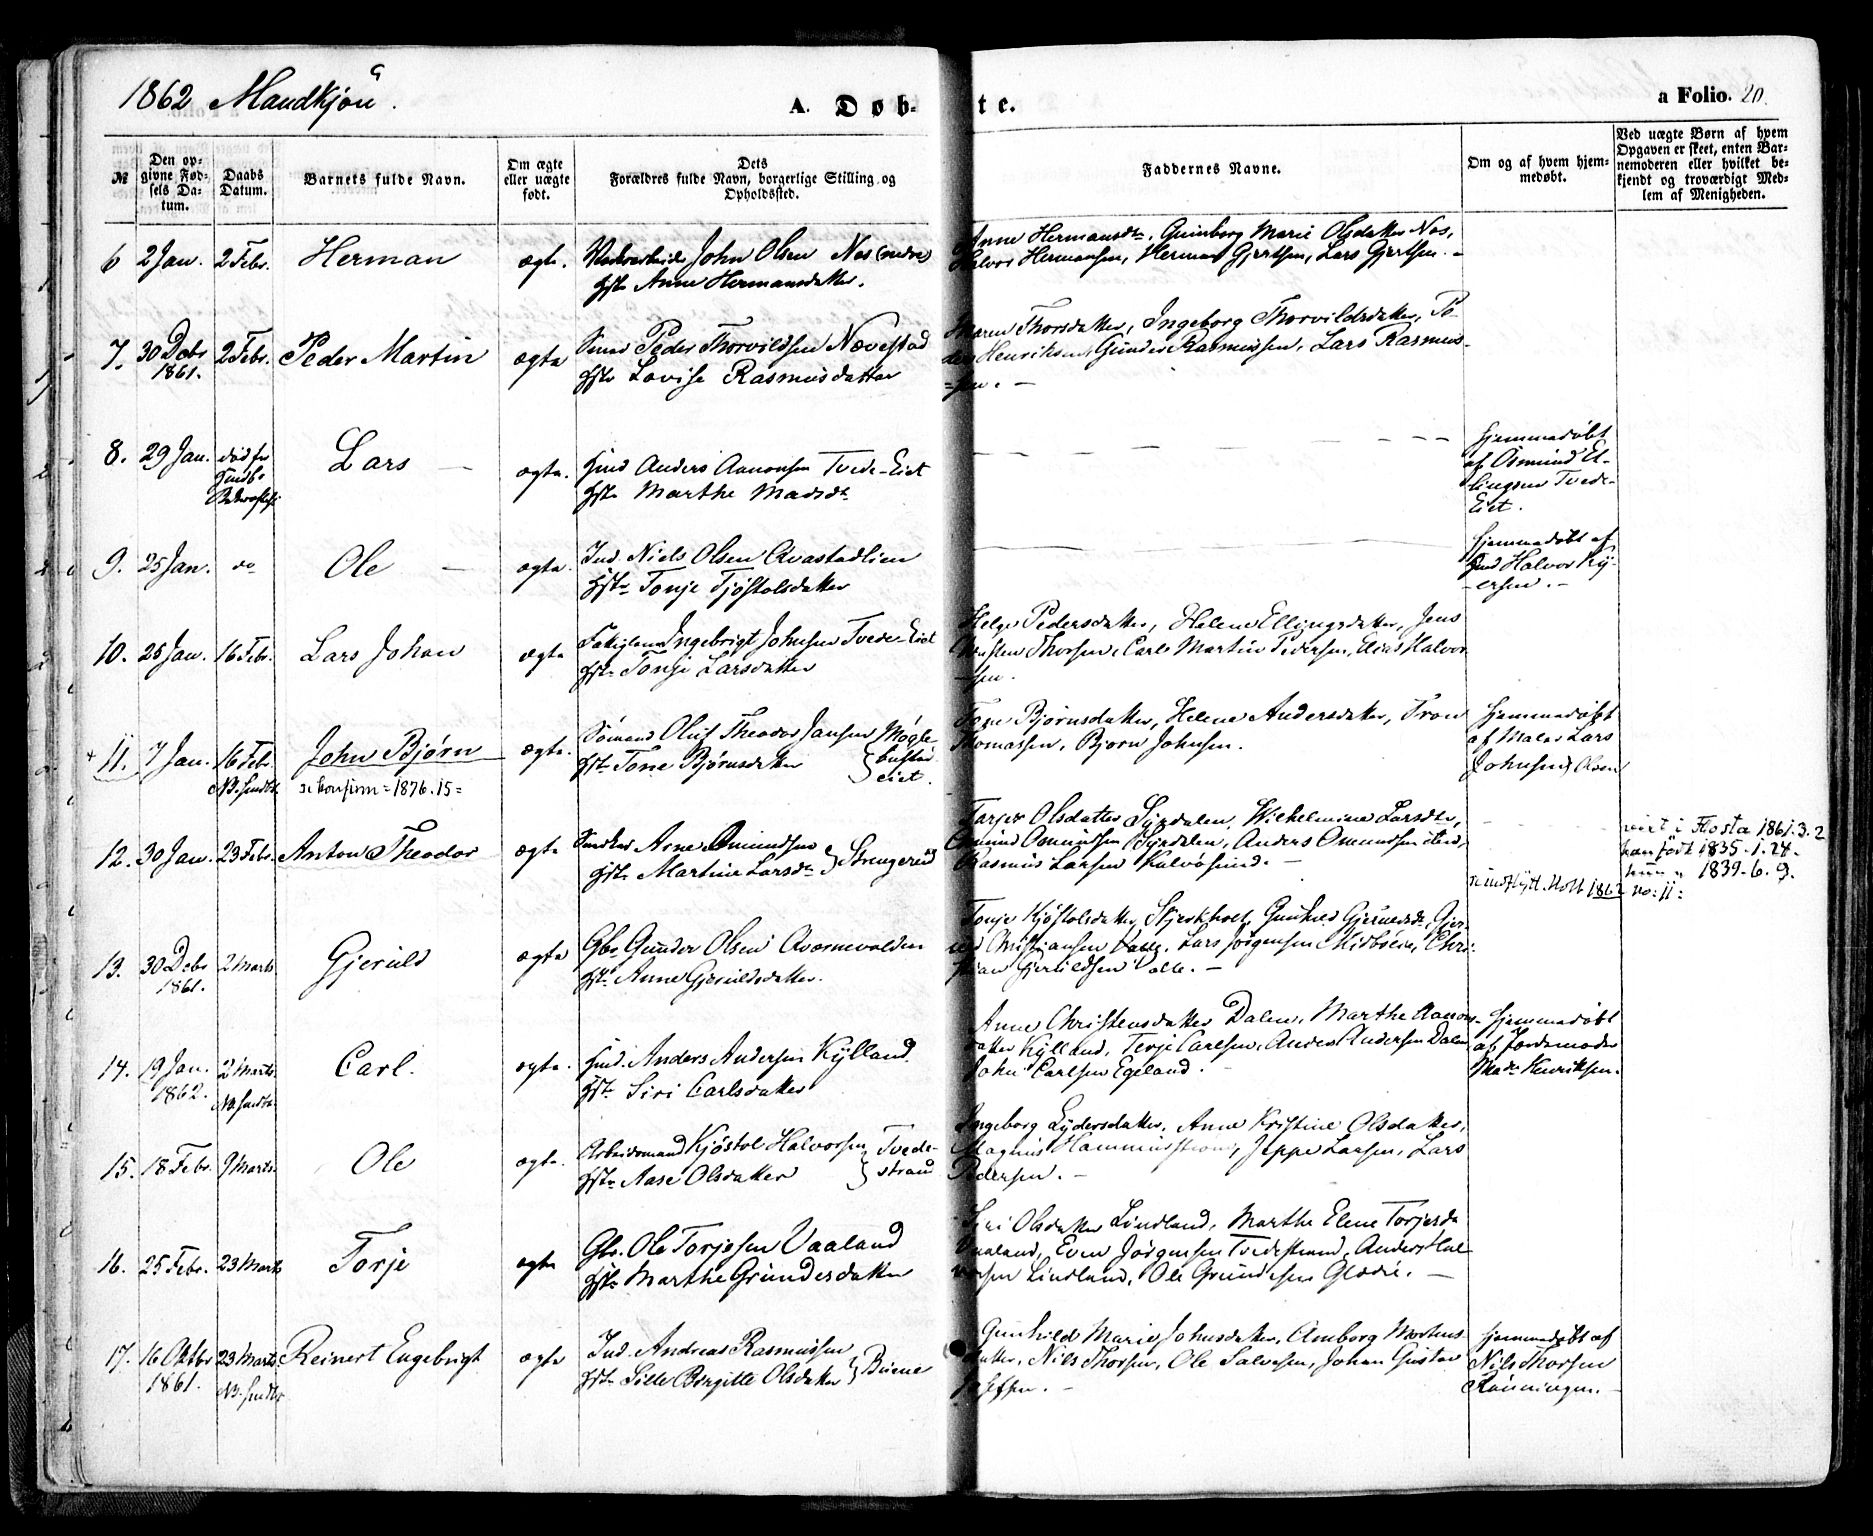 1862 Mandkjøn.
A. Døb-
te.
a Folio. 20.
№
Den op-
givne Fød-
sels Da-
tum.
Daabs
Datum.
Barnets fulde Navn.
Om ægte
eller uægte
født.
Dets
Forældres fulde Navn, borgerlige Stilling og
Opholdssted.
Faddernes Navne.
Om og af hvem hjem-
medøbt.
Ved uægte Børn af hvem
Opgaven er skeet, enten Bar-
nemoderen eller hvilket be-
kjendt og troværdigt Med-
lem af Menigheden.
6 2 Jan. 2 Febr. Herman ægte. John Olsen Næs (nedre)
Hstr Anne Hermansdatter.
Anne Hermansdtr, Gunborg Marie Olsdatter Næs,
Halvor Hermansen, Herman Gjertsen, Lars Gjertsen.
7. 30 Decbr 1861. 2 Febr. Peder Martin ægte Smed Peder Thorvildsen Nævestad
Hstr Lovise Rasmusdatter
Maren Thorsdatter, Ingeborg Thorvildsdatter, Pe-
der Henriksen, Gunder Rasmussen, Lars Rasmus-
=sen.
8. 29 Jan. død før Lars ægte. Ind Anders Aanonsen Tvede-Eiet
Hstr Marthe Madsdtr
Hjemmedøbt
af Osmund El-
lingsen Tvede-
Eiet.
9. 25 Jan. do Ole ægte. Ind. Niels Olsen Qvastadlien
Hstr Tonje Tjøstolsdatter
Hjemmedøbt af
Ind Halvor Ky-
ersen.
10. 25 Jan. 16 Febr. Lars Johan ægte Ingebrigt Johnsen Tvede-Eiet
Hstr Tonje Larsdatter
Helge Pedersdatter, Helene Ellingsdatter, Jens
Thorsen, Carl Martin Pedersen, Elias Halvor
-sen.
11. 7 Jan. 16 Febr. John Bjørn ægte. Sømand Oluf Theodor Jansen } Møgle-
Hstr Tone Bjørnsdatter
eiet.
NB. se konfirm = 1876. 15 =
Tone Bjørnsdatter, Helene Andersdatter, Tron
Thomassen, Bjørn Johnsen.
Hjemmedøbt
af Maler Lars
Johnsen (Olsen)
12. 30 Jan. 23 Febr. Anton Theodor ægte Arne Omundsen } Strengereid
Hstr Martine Larsdtr
Olsdatter Syrdalen, Wilhelmine Larsdtr,
Omund Omundsen Syrdalen, Anders Omundsen ibid,
Rasmus Larsen Kalvøsund.
viet i Flosta 1861. 3. 2
han født 1835. 1. 24.
hun " 1839. 6. 9.
se indflytt. Holt 1862 no: 11:
13. 30 Decbr 1861. 2 Marts Gjeruld ægte Gbr Gunder Olsen Qværnevolden
Hstr Anne Gjeruldsdatter.
Tonje Kjøstolsdatter, Gunhild Gjeruldsdtr, Gje-
ruld Christiansen Valle, Lars Jørgensen Midbøen, Chri-
stian Gjeruldsen Valle.
14. 19 Jan. 1862. 2 Marts Carl. ægte. Ind. Anders Andersen Kylland.
Hstr Siri Carlsdatter
Anne Christensdatter Dalen, Marthe Aanons-
datter Kylland, Terje Carlsen, Anders Andersen Dalen
John Carlsen Egeland.
Hjemmedøbt
af Jordemoder
Mad. Henriksen.
15. 18 Febr. 9 Marts Ole ægte. Arbeidsmand Kjøstol Halvorsen } Tvede-
Hstr Aase Olsdatter strand
Ingeborg Lydersdatter, Anne Kristine Olsdatter,
Magnus Hammerstrøm, Jeppe Larsen, Lars
Pedersen.
16. 25 Febr. 23 Marts Torje ægte Gbr. Ole Torjesen Vaaland
Hstr Marthe Gundersdatter
Siri Olsdatter Lindland, Marthe Elene Torjesd.
Vaaland, Even Jørgensen Tvedestrand, Anders Hal-
vorsen Lindland, Ole Gundersen
17. 16 Oktbr 1861. 23 Marts Reinert Engebrigt ægte Ind. Andreas Rasmussen
Hstr Sille Birgitte Olsdatter } Buene
Gunhild Marie Johnsdatter, Amborg Mortens-
datter, Nils Thorsen, Ole Salvesen, Johan Gustav
Josefsen.
Hjemmedøbt af
Nils Thorsen
Rønningen.